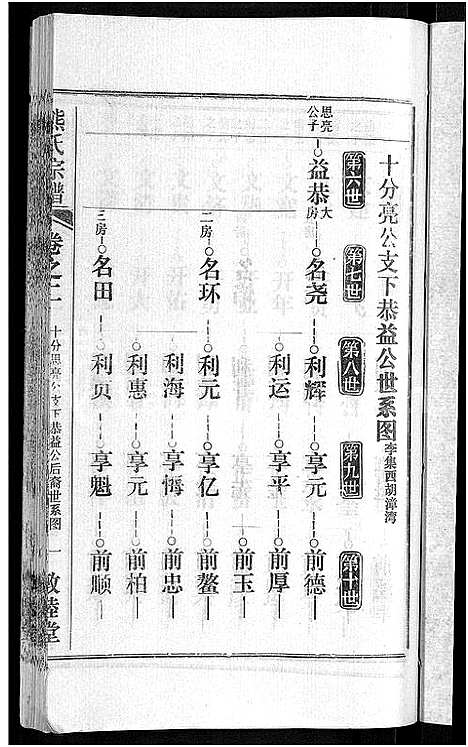 十分亮公支下恭益公世系图 李集西胡漳湾
第六世 第七世 第八世 第九世 第十世
思亮公子 益恭 大房 名尧 利辉 享元 前德
利运 享平 前厚
前玉
二房 名环 利元 享亿 前鳌
利海 享悔 前忠
利惠 享元 前柏
三房 名田 利贝 享魁 前顺
熊氏宗谱 卷之二 十分思亮公支下恭益公后裔世系图 一 敦睦堂